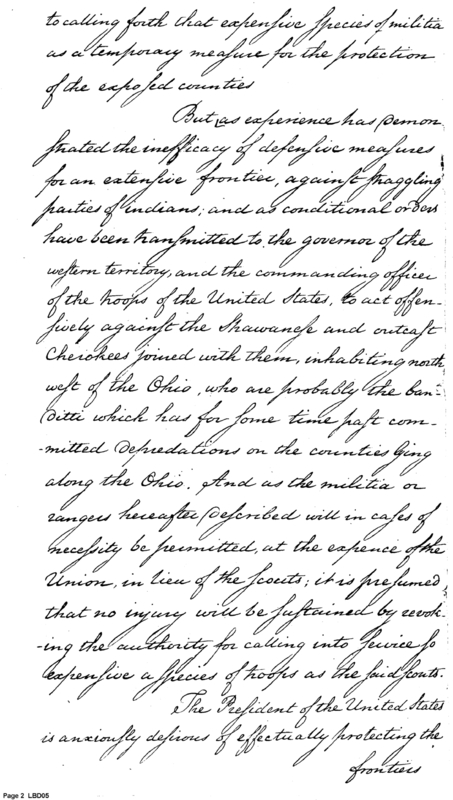 to calling forth that expensive species of militia
as a temporary measure for the protection
of the exposed counties
But, as experience has demon
strated the inefficacy of defensive measures
for an extensive frontier, against straggling
parties of indians; and as conditional orders
have been transmitted to the governor of the
western territory, and the commanding officer
of the troops of the United States, to act offen-
sively against the Shawanese and outcast
Cherokees joined with them, inhabiting north
west of the Ohio, who are probably the ban-
ditti which has for some time past com-
-mitted depredations on the counties lying
along the Ohio. And as the militia or
rangers hereafter described will in cases of
necessity be permitted, at the expence of the
Union, in lieu of the scouts; it is presumed
that no injury will be sustained by revok-
-ing the authority for calling into service so
expensive a species of troops as the said scouts.
The President of the United States
is anxiously desirous of effectually protecting the
frontiers
Page 2 LBD05